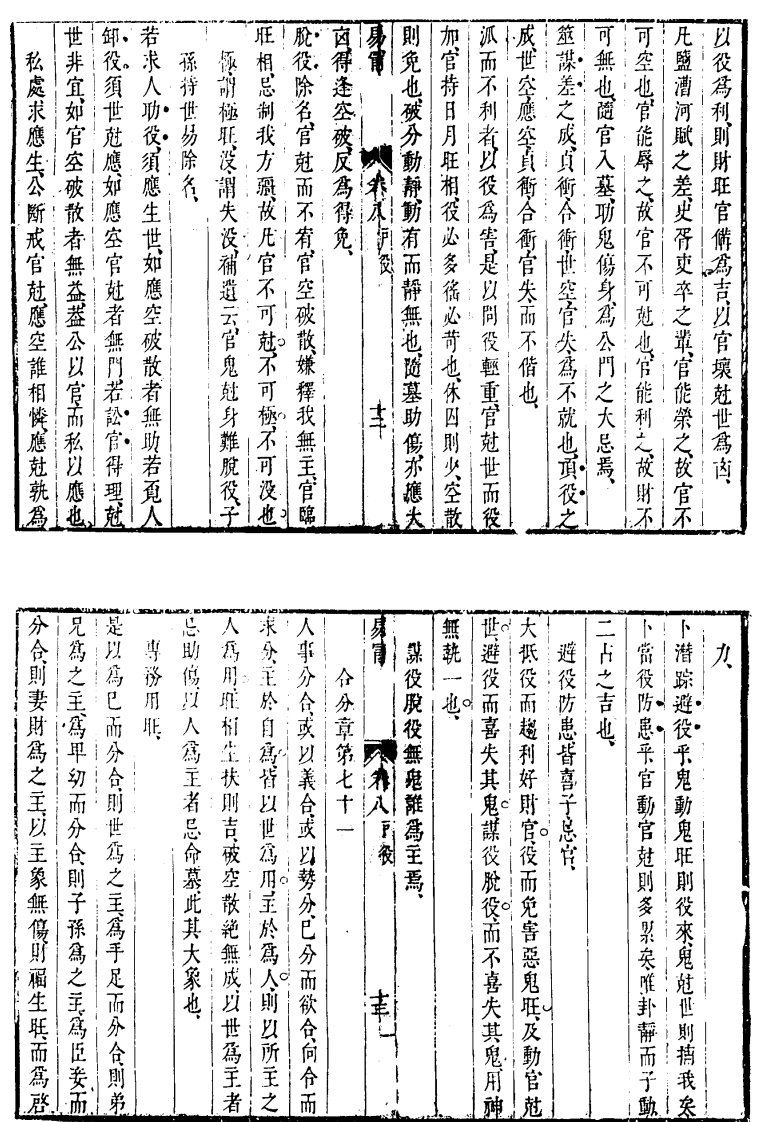 以役爲利則財旺官備爲吉以官壞尅世爲凶
凡鹽漕河賦之差史胥吏卒之輩官能榮之故官不
可空也官能辱之故官不可尅也官能利之故財不
可無也隨官入墓功鬼傷身爲公門之大忌焉
簽謀差之成貞衝合衝世空官失爲不就也頂役之
成世空應空貞衝合衝官失而不偕也
派而不利者以役爲害是以問役輕重官尅世而役
加官持日月旺相役必多徭必苛也休囚則少空散
則免也破分動靜動有而靜無也隨墓助傷亦應大
易冒 卷八 戶役 十二
凶得逢空破反爲得免
脫役除名官尅而不宥官空破散嫌釋我無主官臨
旺相忌制我方彊故凡官不可尅不可極不可没也
極謂極旺没謂失没補遺云官鬼尅身難脫役子
孫持世易除名
若求人功役須應生世如應空破散者無助若覔人
卸役須世尅應如應空官尅者無門若訟官得理尅
世非宜如官空破散者無益葢公以官而私以應也
私處求應生公斷戒官尅應空誰相憐應尅孰爲
力
卜潛踪避役乎鬼動鬼旺則役來鬼尅世則擒我矣
卜當役防患乎官動官尅則多累矣唯卦靜而子動
二占之吉也
避役防患皆喜子忌官
大低役而趨利好財官役而免害惡鬼旺及動官尅
世避役而喜失其鬼謀役脫役而不喜失其鬼用神
無執一也
謀役脫役無鬼誰爲主焉
易冒 卷八 戶役 十三
合分章第七十一
人事分合或以義合或以勢分已分而欲合向合而
求分主於自爲皆以世爲用主於爲人則以所主之
人爲用旺相生扶則吉破空散絶無成以世爲主者
忌助傷以人爲主者忌命墓此其大象也
專務用旺
是以爲巳而分合則世爲之主爲手足而分合則弟
兄爲之主爲卑幼而分合則子孫爲之主爲臣妾而
分合則妻財爲之主以主象無傷財福生旺而爲啓